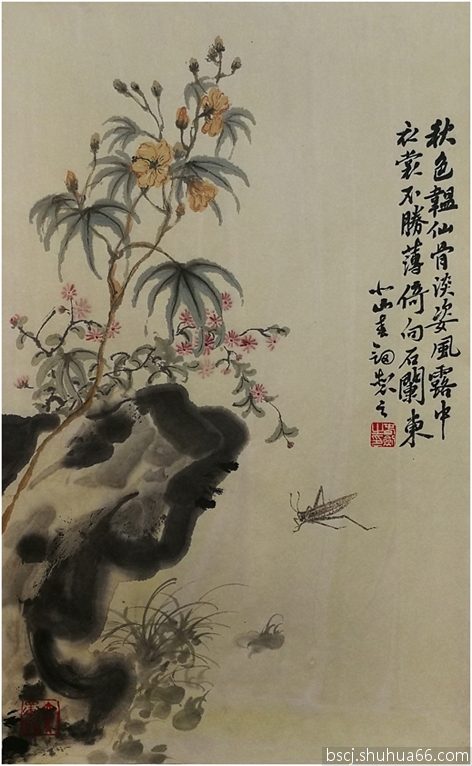 秋色韞仙骨淡姿風露中
衣裳不勝薄倚向石闌東
小山詞製之
bscj.shuhua66.com